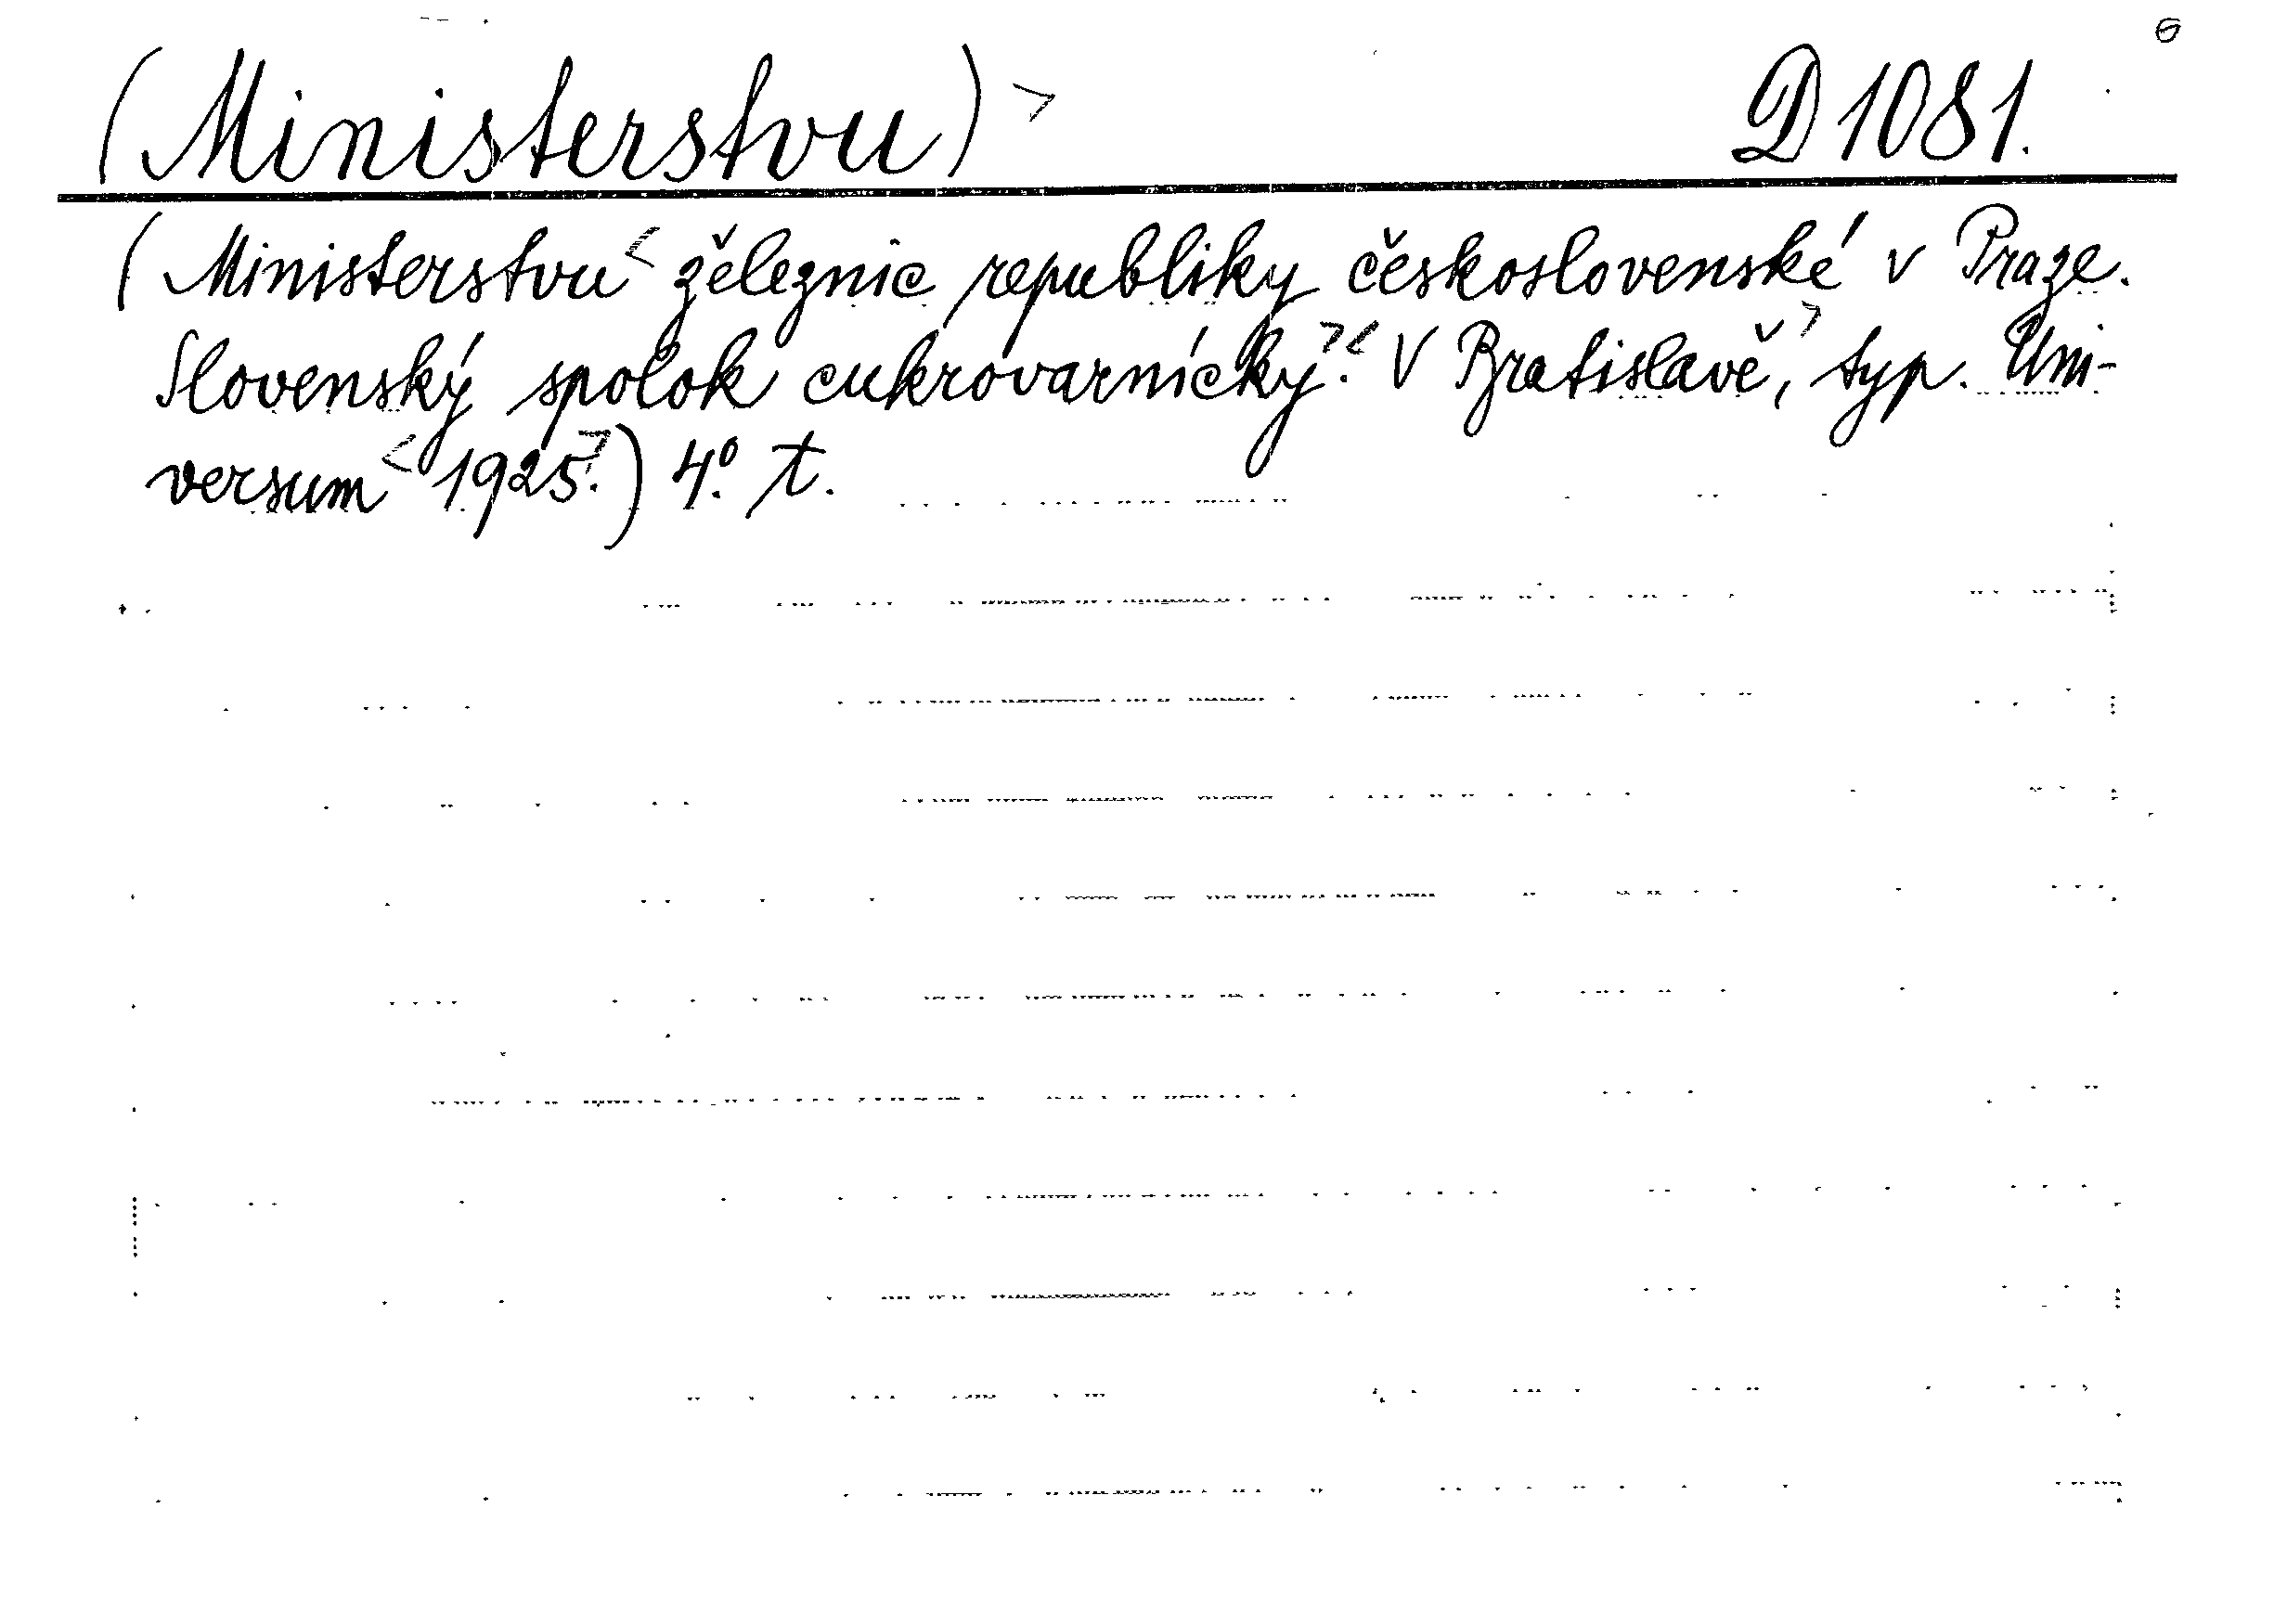 (Ministerstvu) > D 1081.
(Ministerstvu < železnic republiky československé v Praze.
Slovenský spolok cukrovarnícky > <. V Bratislavě, > typ. Uni-
versum < 1925. >) 4°. t.